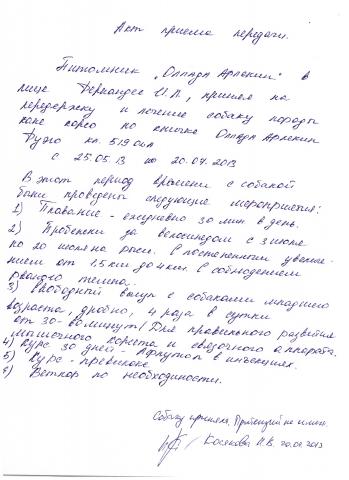 Акт приема передачи.
Питомник „Оллада Арлекин" в
лице Фернандес И.А., принял на
передержку и лечение собаку породы
кане корсо по кличке Оллада Арлекин
кл. 519
с 25.05.13 по 20.07.2013
В этот период времени с собакой
были проведены следующие мероприятия:
1) Плавание - ежедневно 30 мин. в день.
2) Пробежки за велосипедом с 3 июля
по 20 июля на рыси. С постепенным увеличе-
нием от 1,5 км до 4 км. С соблюдением
темпа.
3) Свободный выгул с собаками младшего
возраста, дробно, 4 раза в сутки
от 30- минут / Для правильного развития
мышечного корсета и связочного аппарата.
4) Курс 30 дней - в инъекциях.
5) Курс -
6) Веткор по необходимости.
Собаку приняла, Претензий не имею.
/ Косякова 20.07.2013